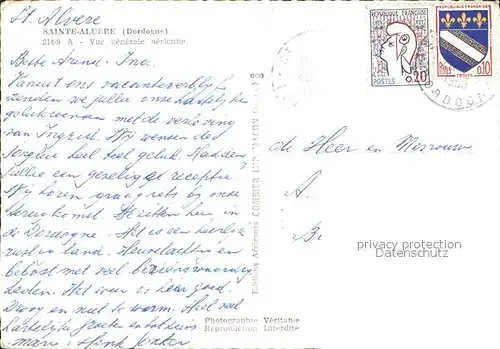 St. Alvere
SAINTE-ALVÈRE (Dordogne)
214-9 A - Vue générale aérienne
Beste Arend - Ina.
Vanuit ons vacantieverblijf
zenden we jullie onze hartelijke
gelukwensen met de verloving
van Ingrid. Wij wensen het
jonge heel veel geluk. Hadden
jullie een gezellige receptie?
Wij horen graag iets bij onze
thuiskomst. We zitten hier in
de Dordogne. Het is een heerlijk
rustig land. Heuvelachtig en
bebost met veel bezienswaardig
heden. Het weer is zeer goed.
Droog en niet te warm. Heel veel
hartelijke groeten en tot ziens
Henk
Editions Aériennes COMBIER IMP. MACON
REPUBLIQUE FRANÇAISE
POSTES
0,20
REPUBLIQUE FRANÇAISE
POSTES
0,10
TROYES
DORDOGNE
de Heer en Mevrouw
A.
B
privacy protection
Datenschutz
Photographie Véritable
Reproduction Interdite